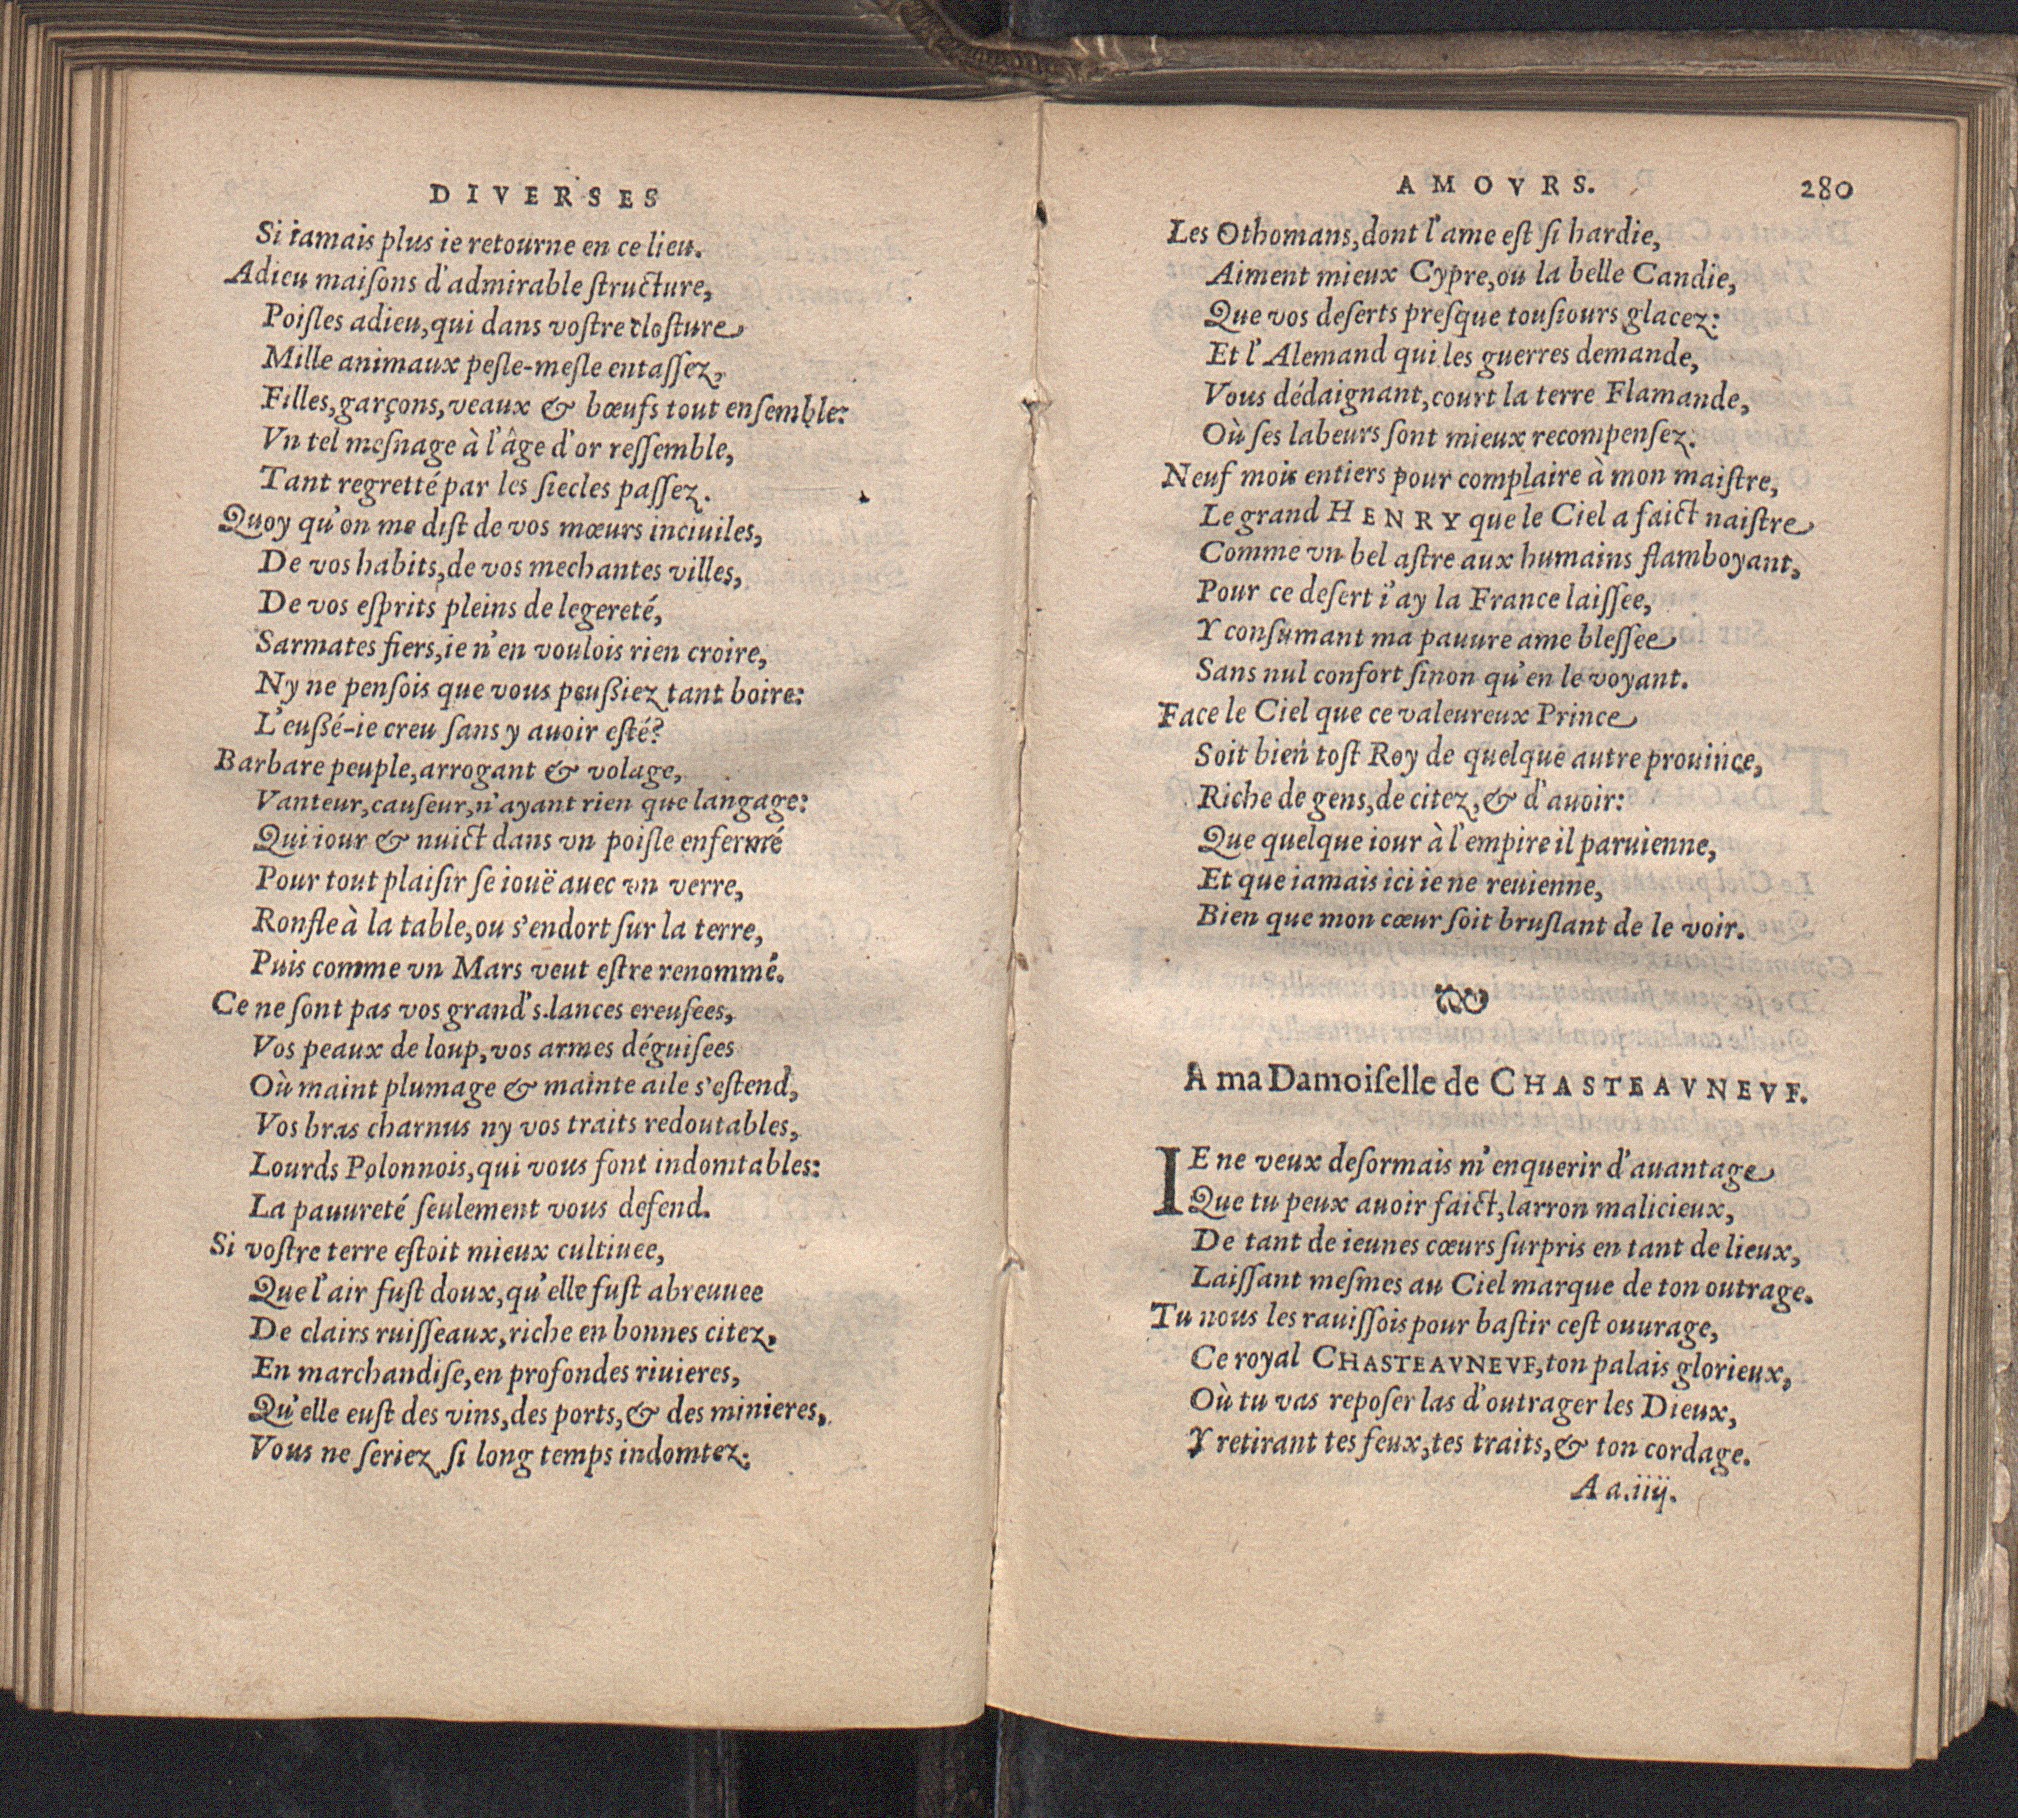 DIVERSES
Si iamais plus ie retourne en ce lieu.
Adieu maiſons d'admirable ſtructure,
Poiſles adieu, qui dans voſtre cloſture
Mille animaux peſle-meſle entaſſez,
Filles, garçons, veaux & bœufs tout enſemble:
Vn tel meſnage à l'âge d'or reſſemble,
Tant regretté par les ſiecles paſſez.
Quoy qu'on me diſt de vos mœurs inciuiles,
De vos habits, de vos mechantes villes,
De vos eſprits pleins de legereté,
Sarmates fiers, ie n'en voulois rien croire,
Ny ne penſois que vous peußiez tant boire:
L'eußé-ie creu ſans y auoir eſté?
Barbare peuple, arrogant & volage,
Vanteur, cauſeur, n'ayant rien que langage:
Qui iour & nuict dans vn poiſle enfermé
Pour tout plaiſir ſe iouë auec vn verre,
Ronfle à la table, ou s'endort ſur la terre,
Puis comme vn Mars veut eſtre renommé.
Ce ne ſont pas vos grand's lances creuſees,
Vos peaux de loup, vos armes déguiſees
Où maint plumage & mainte aile s'eſtend,
Vos bras charnus ny vos traits redoutables,
Lourds Polonnois, qui vous font indomtables:
La pauureté ſeulement vous defend.
Si voſtre terre eſtoit mieux cultiuee,
Que l'air fuſt doux, qu'elle fuſt abreuuee
De clairs ruiſſeaux, riche en bonnes citez,
En marchandiſe, en profondes riuieres,
Qu'elle euſt des vins, des ports, & des minieres,
Vous ne ſeriez ſi long temps indomtez.
AMOVRS. 280
Les Othomans, dont l'ame eſt ſi hardie,
Aiment mieux Cypre, ou la belle Candie,
Que vos deſerts preſque touſiours glacez:
Et l'Alemand qui les guerres demande,
Vous dédaignant, court la terre Flamande,
Où ſes labeurs ſont mieux recompenſez.
Neuf mois entiers pour complaire à mon maiſtre,
Le grand HENRY que le Ciel a faict naiſtre
Comme vn bel aſtre aux humains flamboyant,
Pour ce deſert i'ay la France laiſſee,
Y conſumant ma pauure ame bleſſee
Sans nul confort ſinon qu'en le voyant.
Face le Ciel que ce valeureux Prince
Soit bien toſt Roy de quelque autre prouince,
Riche de gens, de citez, & d'auoir:
Que quelque iour à l'empire il paruienne,
Et que iamais ici ie ne reuienne,
Bien que mon cœur ſoit bruſlant de le voir.
A ma Damoiſelle de CHASTEAVNEVF.
IE ne veux deſormais m'enquerir d'auantage
Que tu peux auoir faict, larron malicieux,
De tant de ieunes cœurs ſurpris en tant de lieux,
Laiſſant meſmes au Ciel marque de ton outrage.
Tu nous les rauiſſois pour baſtir ceſt ouurage,
Ce royal CHASTEAVNEVF, ton palais glorieux,
Où tu vas repoſer las d'outrager les Dieux,
Y retirant tes feux, tes traits, & ton cordage.
Aa.iiij.